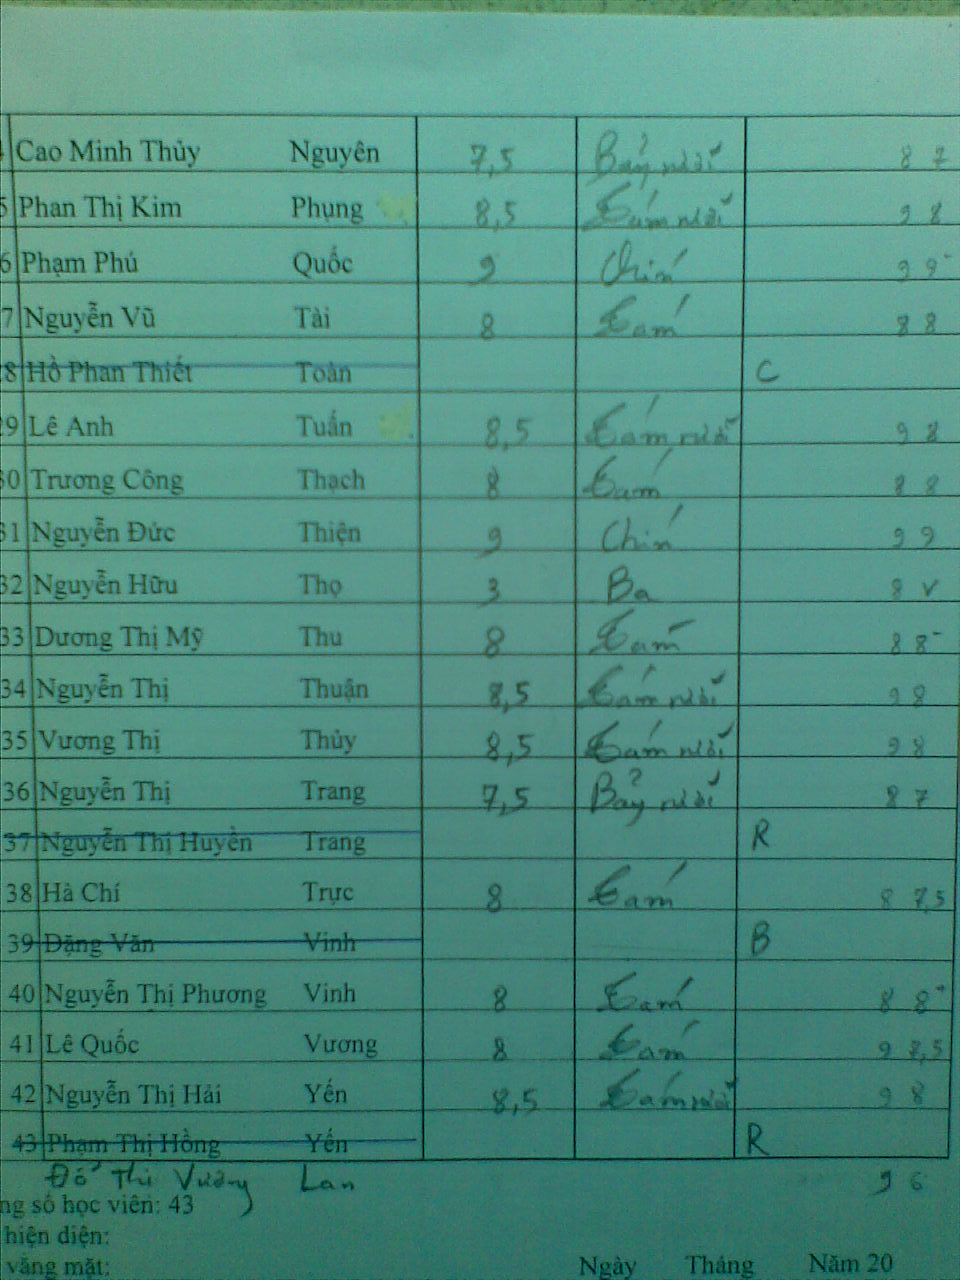 Cao Minh Thủy Nguyên 7,5 Bảy rưỡi 8 7
5 Phan Thị Kim Phụng 8,5 Tám rưỡi 9 8
6 Phạm Phú Quốc 9 Chín 9 9-
7 Nguyễn Vũ Tài 8 Tám 8 8
28 Hồ Phan Thiết Toàn C
29 Lê Anh Tuấn 8,5 Tám rưỡi 9 8
30 Trương Công Thạch 8 Tám 8 8
31 Nguyễn Đức Thiện 9 Chín 9 9
32 Nguyễn Hữu Thọ 3 Ba 8 v
33 Dương Thị Mỹ Thu 8 Tám 8 8-
34 Nguyễn Thị Thuận 8,5 Tám rưỡi 9 8
35 Vương Thị Thủy 8,5 Tám rưỡi 9 8
36 Nguyễn Thị Trang 7,5 Bảy rưỡi 8 7
37 Nguyễn Thị Huyền Trang R
38 Hà Chí Trực 8 Tám 8 7,5
39 Đặng Văn Vinh B
40 Nguyễn Thị Phương Vinh 8 Tám 8 8+
41 Lê Quốc Vương 8 Tám 9 7,5
42 Nguyễn Thị Hải Yến 8,5 Tám rưỡi 9 8
43 Phạm Thị Hồng Yến R
Đỗ Thị Vương Lan 9 6
ng số học viên: 43
hiện diện:
vắng mặt: Ngày Tháng Năm 20